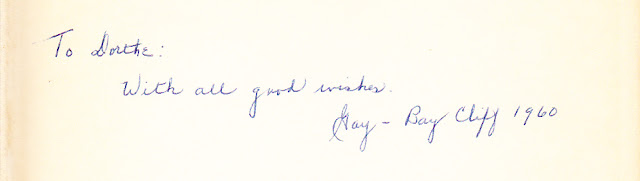 To Dorthe:
With all good wishes.
Gay - Bay Cliff 1960